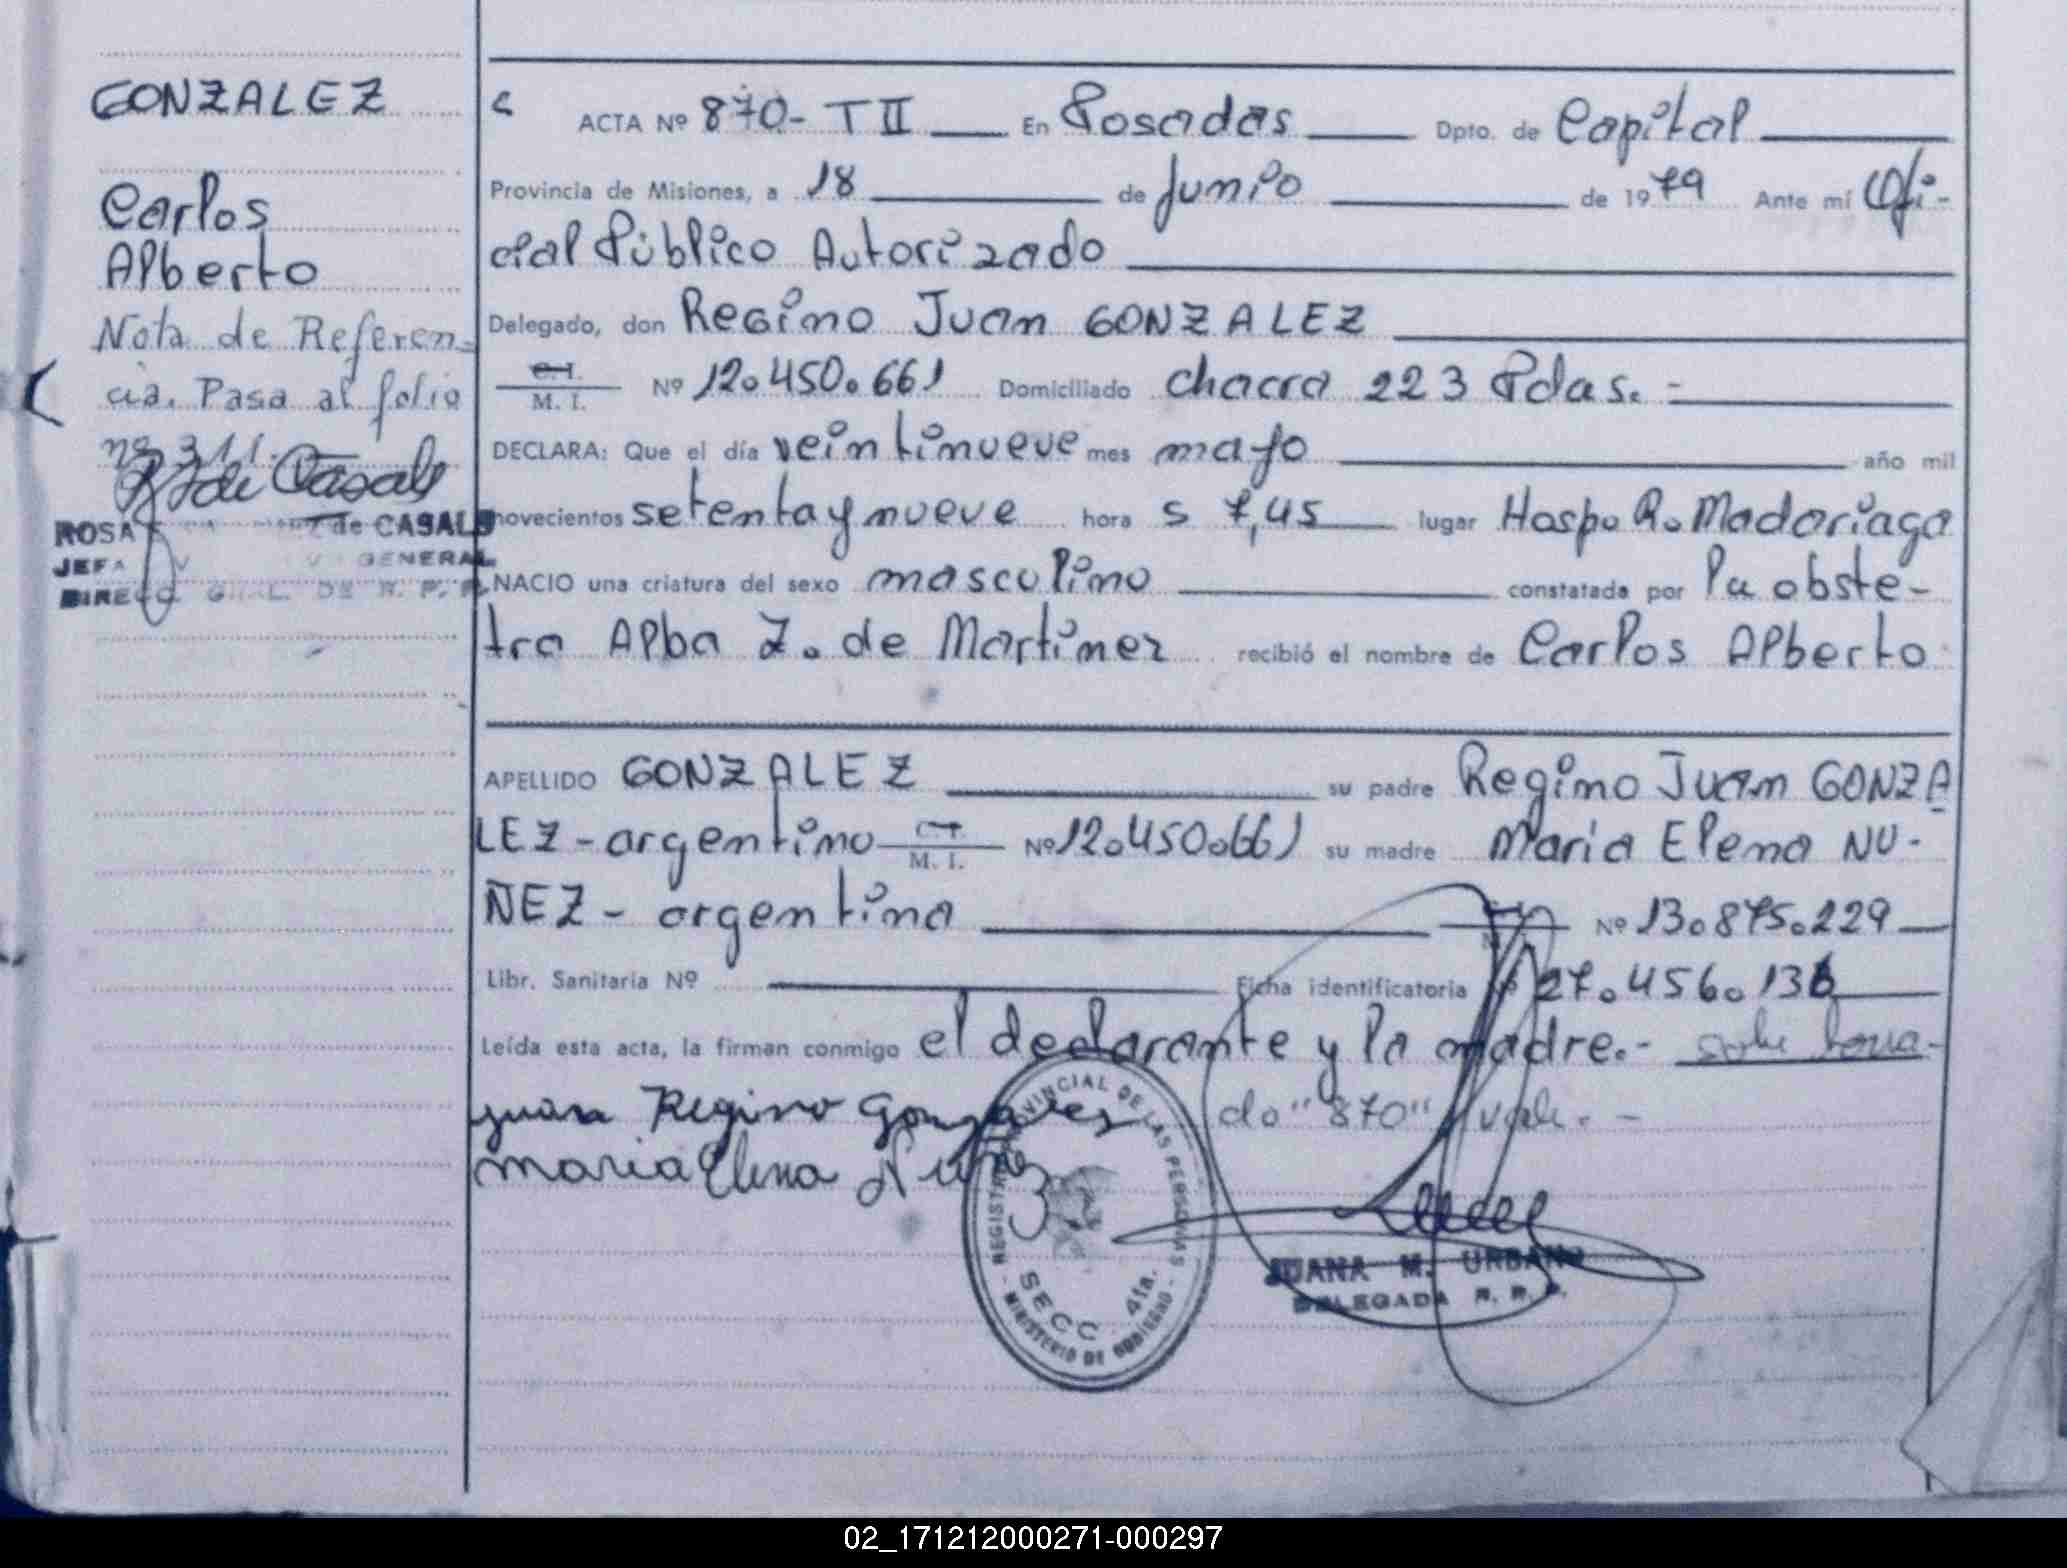 GONZALEZ
Carlos
Alberto
Nota de Referen-
cia. Pasa al folio
nº 311.
de Casals
ROSA de CASALS
JEFA GENERAL
DIREC. GRAL. DE R. P. P.
ACTA Nº 870- T II En Posadas Dpto. de Capital
Provincia de Misiones, a 18 de Junio de 1979 Ante mí Ofi-
cial Público Autorizado
Delegado, don Regino Juan GONZALEZ
C. I.
M. I. Nº 12.450.661 Domiciliado chacra 223 Pdas. -
DECLARA: Que el día veintinueve mes mayo año mil
novecientos setenta y nueve hora s 7,45 lugar Hosp. R. Madariaga
NACIO una criatura del sexo masculino constatada por la obste-
tra Alba Z. de Martinez recibió el nombre de Carlos Alberto
APELLIDO GONZALEZ su padre Regino Juan GONZA
LEZ - argentino C. I. M. I. Nº 12.450.661 su madre Maria Elena NU-
ÑEZ - argentina Nº 13.875.229
Libr. Sanitaria Nº Ficha identificatoria Nº 27.456.136
Leída esta acta, la firman conmigo el declarante y la madre.- sobre borra-
do "870" vale. -
Juan Regino Gonzalez
Maria Elena Nuñez
REGISTRO PROVINCIAL DE LAS PERSONAS
SECC. 4ta.
- MINISTERIO DE GOBIERNO -
JUANA M. URBANO
DELEGADA R. P. P.
02_171212000271-000297